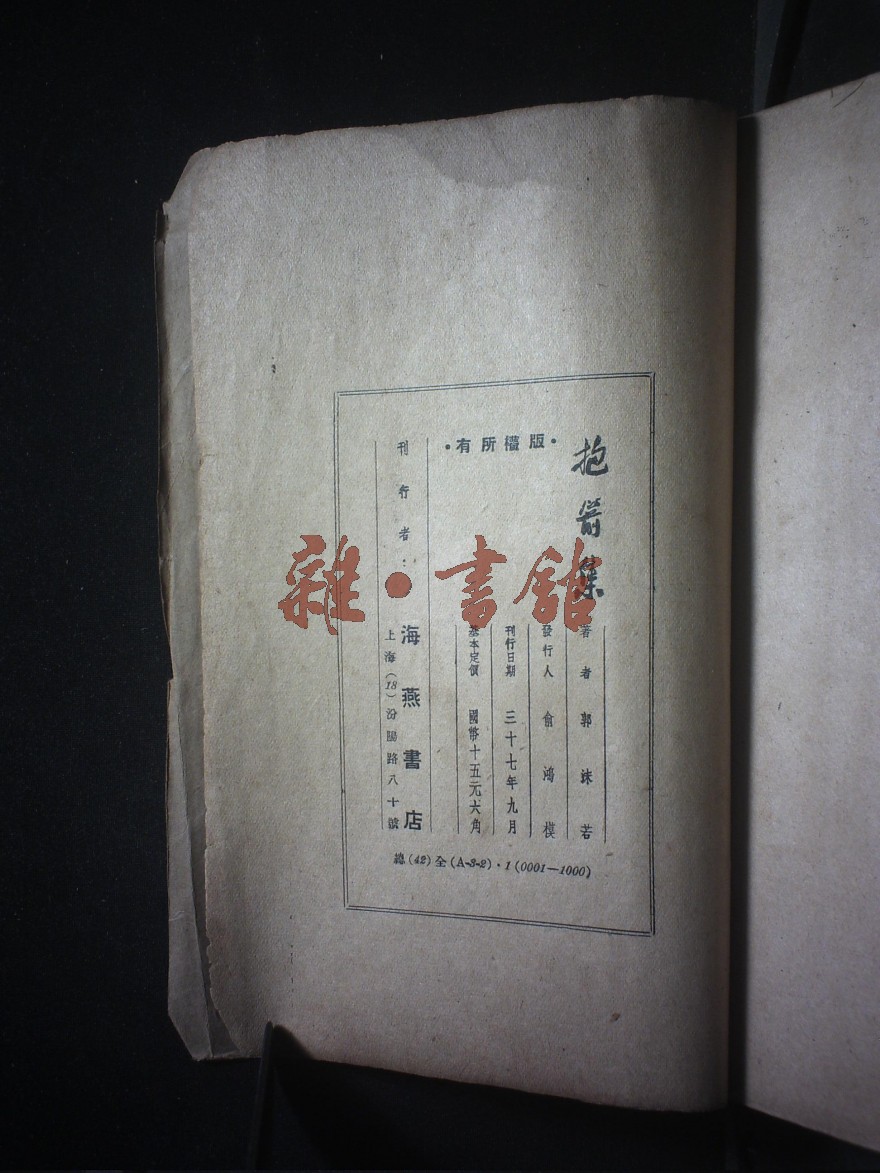 抱箭集
著者 郭沫若
發行人 俞鴻模
刊行日期 三十七年九月
基本定價 國幣十五元六角
•版權所有•
刊行者：海燕書店
上海(18)汾陽路八十號
總(42)全(A-3-2)．1(0001—1000)
雜•書館